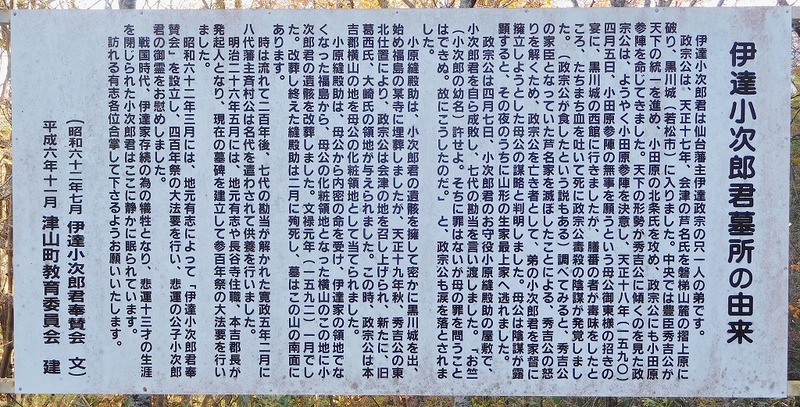 伊達小次郎君墓所の由来
伊達小次郎君は仙台藩主伊達政宗の只一人の弟です。
政宗公は、天正十七年、会津の芦名氏を磐梯山麓の摺上原に
破り、黒川城（若松市）に入りました。中央では豊臣秀吉公が
天下の統一を進め、小田原の北条氏を攻め、政宗公にも小田原
参陣を命じてきました。天下の形勢が秀吉公に傾くのを見た政
宗公は、ようやく小田原参陣を決意し、天正十八年（一五九〇）
四月五日、小田原参陣の無事を願うという母公御東様の招きの
宴に、黒川城の西館に行きましたが、膳番の者が毒味をしたと
ころ、たちまち血を吐いて死に政宗公毒殺の陰謀が発覚しまし
た。（政宗公が食したという説もある）調べてみると、秀吉公
の家臣となっていた芦名家を滅ぼしたことによる、秀吉公の怒
りを解くため、政宗公を亡き者として、弟の小次郎君を家督に
擁立しようとした母公の謀略と判明しました。母公は陰謀が露
顕すると、その夜のうちに山形の生家最上家へ逃れました。
政宗公は四月七日、小次郎君のお守役小原縫殿助の屋敷で、
小次郎君を自ら成敗し、七代の勘当を言い渡しました。「お竺
（小次郎の幼名）許せよ。そちに罪はないが母の罪を問うこと
はできぬ。故にこうしたのだ。」と、政宗公も涙を落とされま
した。
小原縫殿助は、小次郎君の遺骸を擁して密かに黒川城を出、
始め福島の某寺に埋葬しましたが、天正十九年秋、秀吉公の東
北仕置により、政宗公は会津の地を召し上げられ、新たに、旧
葛西氏、大崎氏の領地が与えられました。この時、政宗公は本
吉郡横山の地を母公の化粧領地として当てられました。
小原縫殿助は、母公から内密の命を受け、伊達家の領地でな
くなった福島から、母公の化粧領地となった横山のこの地に小
次郎君の遺骸を改葬しました。文禄元年（一五九二）一月でし
た。改葬し終えた縫殿助は二月に殉死し、墓はこの山の南面に
あります。
時は流れて二百年後、七代の勘当が解かれた寛政五年二月に
八代藩主斉村公は名代を遣わされて供養を行いました。
明治二十六年五月には、地元有志や長谷寺住職、本吉郡長が
発起人となり、現在の墓碑を建立して参百年祭の大法要を行い
ました。
昭和六十二年三月には、地元有志によって「伊達小次郎君奉
賛会」を設立し、四百年祭の大法要を行い、悲運の公子小次郎
君の御霊をお慰めしました。
戦国時代、伊達家存続の為の犠牲となり、悲運十三才の生涯
を閉じられた小次郎君はここに静かに眠られています。
訪れる有志各位合掌して下さるようお願いいたします。
（昭和六十二年七月　伊達小次郎君奉賛会　文）
平成六年十一月　津山町教育委員会　建